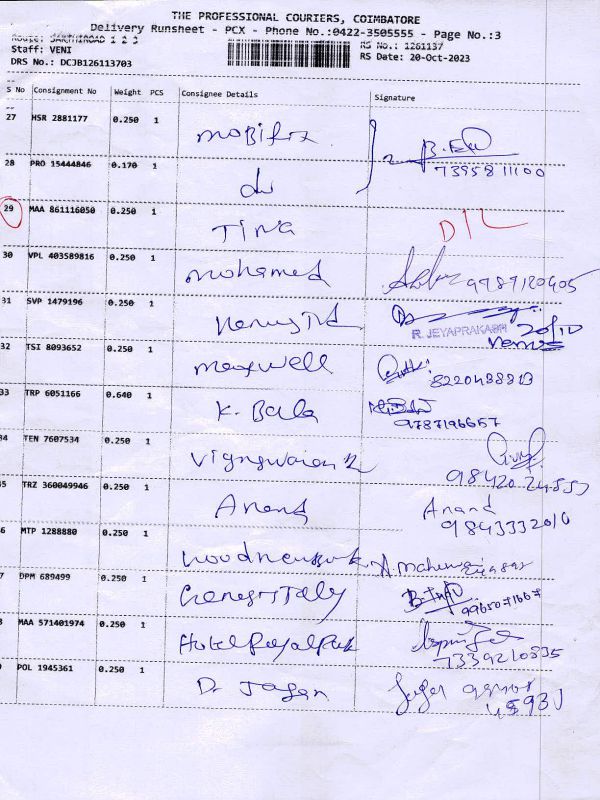 THE PROFESSIONAL COURIERS, COIMBATORE
Delivery Runsheet - PCX - Phone No.:0422-3505555 - Page No.:3
Route: SAKTHIROAD 1 2 3
Staff: VENI
RS No.: 1261137
DRS No.: DCJB126113703
RS Date: 20-Oct-2023
S No Consignment No Weight PCS Consignee Details Signature
27 HSR 2881177 0.250 1 mobifix
28 PRO 15444846 0.170 1 do 7395811100
29 MAA 861116050 0.250 1 Tina D/L
30 VPL 403589816 0.250 1 mohamed 9787120405
31 SVP 1479196 0.250 1
R. JEYAPRAKASH 20/10
32 TSI 8093652 0.250 1 maxwell 8220488813
33 TRP 6051166 0.640 1 K. Bala
9787196657
34 TEN 7607534 0.250 1
35 TRZ 360049946 0.250 1 Anand Anand
9843332010
6 MTP 1288880 0.250 1
7 DPM 689499 0.250 1
8 MAA 571401974 0.250 1 Hotel Royal Park
7339210835
POL 1945361 0.250 1 D. Jagan